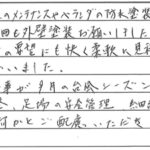 のメンテナンスやベランダの防水塗装
回も外壁塗装お願いしました
の要望にも快く柔軟に見積
いいました。
事が9月の台風シーズン
、足場の安全管理
何かとご配慮いただき